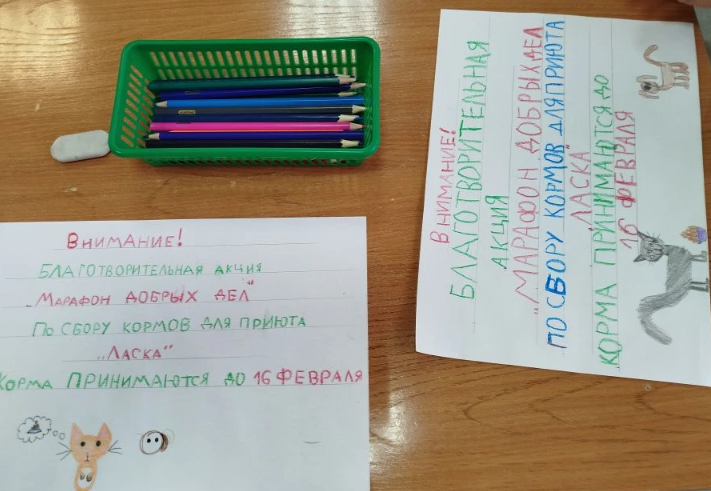 Внимание!
БЛАГОТВОРИТЕЛЬНАЯ АКЦИЯ
„МАРАФОН ДОБРЫХ ДЕЛ"
ПО СБОРУ КОРМОВ ДЛЯ ПРИЮТА
„ЛАСКА"
КОРМА ПРИНИМАЮТСЯ ДО 16 ФЕВРАЛЯ
ВНИМАНИЕ!
БЛАГОТВОРИТЕЛЬНАЯ
АКЦИЯ
„МАРАФОН ДОБРЫХ ДЕЛ
ПО СБОРУ КОРМОВ ДЛЯ ПРИЮТА
ЛАСКА"
КОРМА ПРИНИМАЮТСЯ ДО
16 ФЕВРАЛЯ